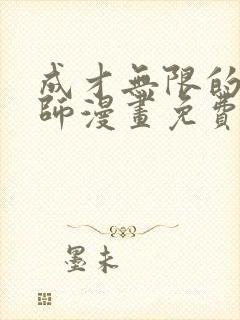 成才無限的
師漫畫免費
墨未